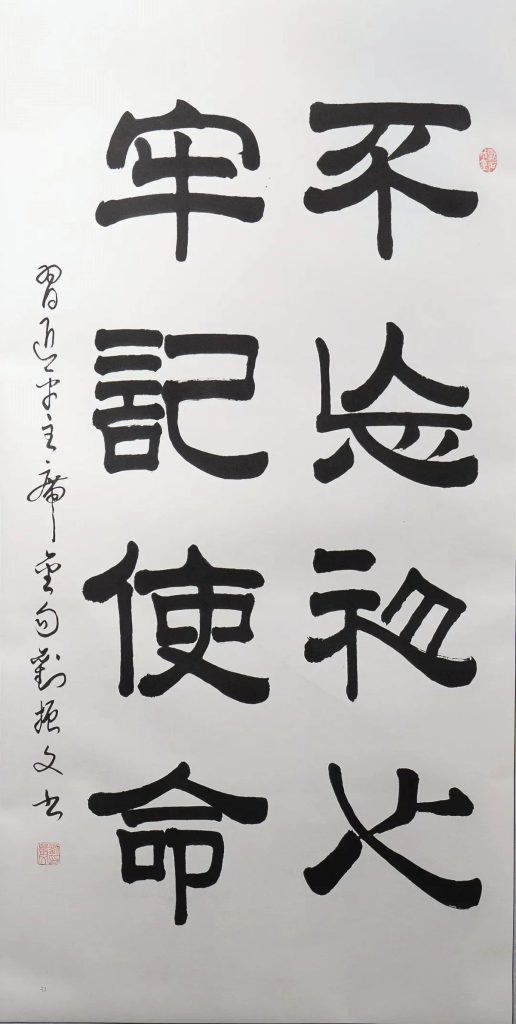 不忘初心
牢記使命
習近平主席金句劉振文书